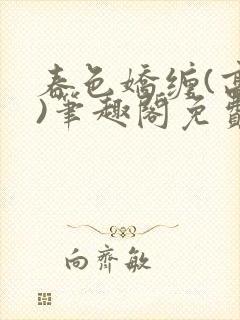 春色嬌纏(高
)筆趣閣免費
向齊敏